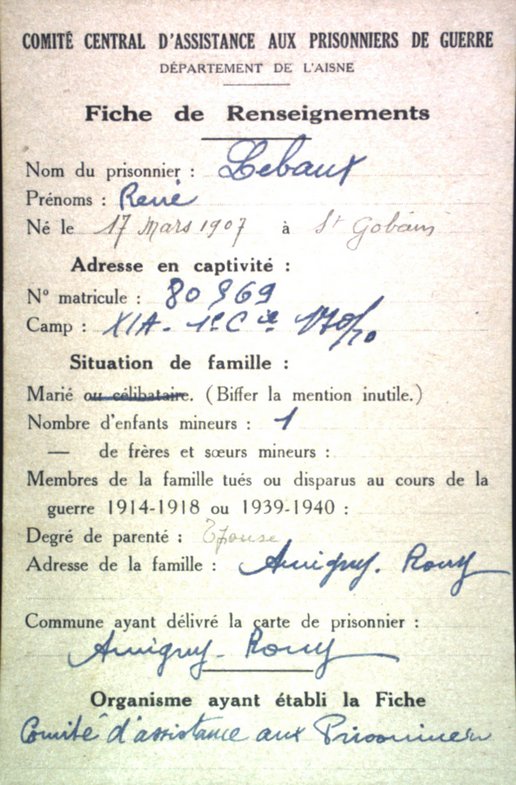 COMITÉ CENTRAL D'ASSISTANCE AUX PRISONNIERS DE GUERRE
DÉPARTEMENT DE L'AISNE
Fiche de Renseignements
Nom du prisonnier : Lebaux
Prénoms : René
Né le 17 Mars 1907 à St Gobain
Adresse en captivité :
N° matricule : 80969
Camp : XIA - 1e Cie 170/10
Situation de famille :
Marié ou célibataire. (Biffer la mention inutile.)
Nombre d'enfants mineurs : 1
— de frères et sœurs mineurs :
Membres de la famille tués ou disparus au cours de la
guerre 1914-1918 ou 1939-1940 :
Degré de parenté : Epouse
Adresse de la famille : Amigny-Rouy
Commune ayant délivré la carte de prisonnier :
Amigny-Rouy
Organisme ayant établi la Fiche
Comité d'assistance aux Prisonniers